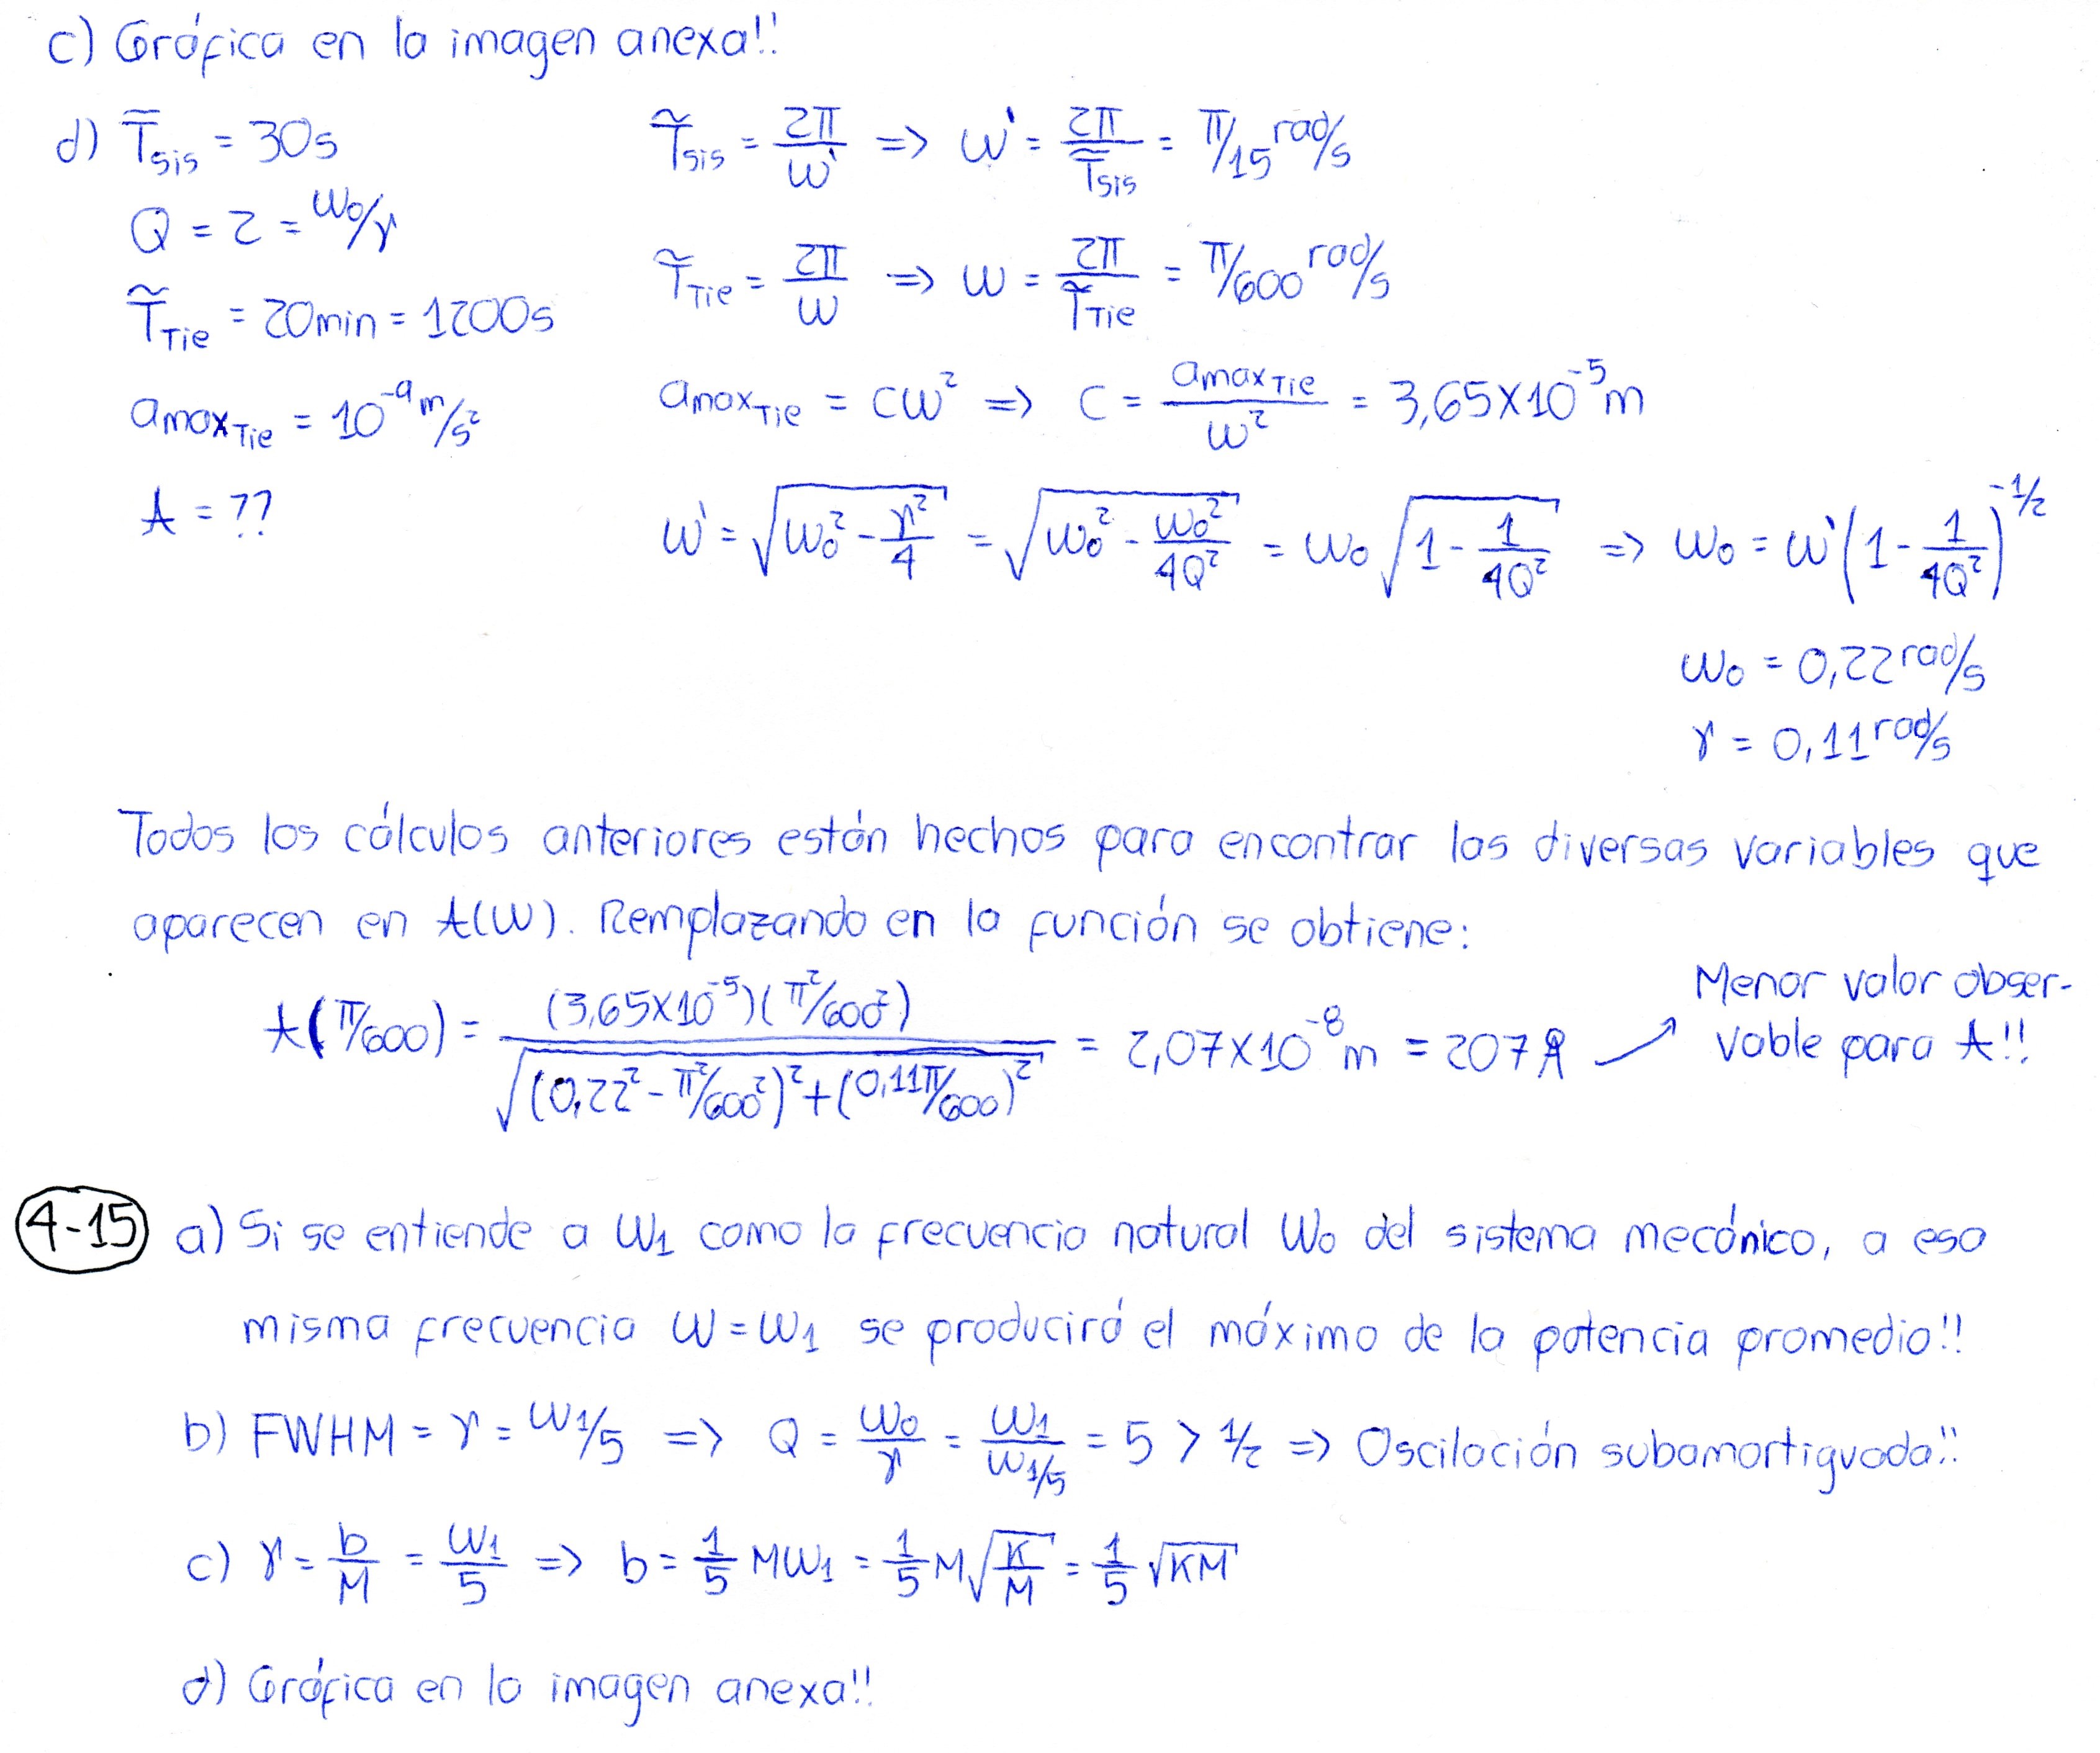 c) Gráfica en la imagen anexa!!
d) T̃sis = 30s    T̃sis = 2π/ω' => ω' = 2π/T̃sis = π/15 rad/s
Q = 2 = ω0/γ
T̃Tie = 2π/ω => ω = 2π/T̃Tie = π/600 rad/s
T̃Tie = 20min = 1200s
amaxTie = 10^-9 m/s²    amaxTie = Cω² => C = amaxTie/ω² = 3,65X10^-5 m
A = ??    ω' = √(ω0² - γ²/4) = √(ω0² - ω0²/4Q²) = ω0 √(1 - 1/4Q²) => ω0 = ω'(1 - 1/4Q²)^-1/2
ω0 = 0,22 rad/s
γ = 0,11 rad/s
Todos los cálculos anteriores están hechos para encontrar las diversas variables que
aparecen en A(ω). Remplazando en la función se obtiene:
A(π/600) = (3,65X10^-5)(π²/600²) / √((0,22² - π²/600²)² + (0,11π/600)²) = 2,07X10^-8 m = 207 Å → Menor valor obser-
vable para A!!
4-15 a) Si se entiende a ω1 como la frecuencia natural ω0 del sistema mecánico, a esa
misma frecuencia ω = ω1 se producirá el máximo de la potencia promedio!!
b) FWHM = γ = ω1/5 => Q = ω0/γ = ω1/(ω1/5) = 5 > 1/2 => Oscilación subamortiguada!!
c) γ = b/M = ω1/5 => b = 1/5 Mω1 = 1/5 M√(K/M) = 1/5 √KM
d) Gráfica en la imagen anexa!!